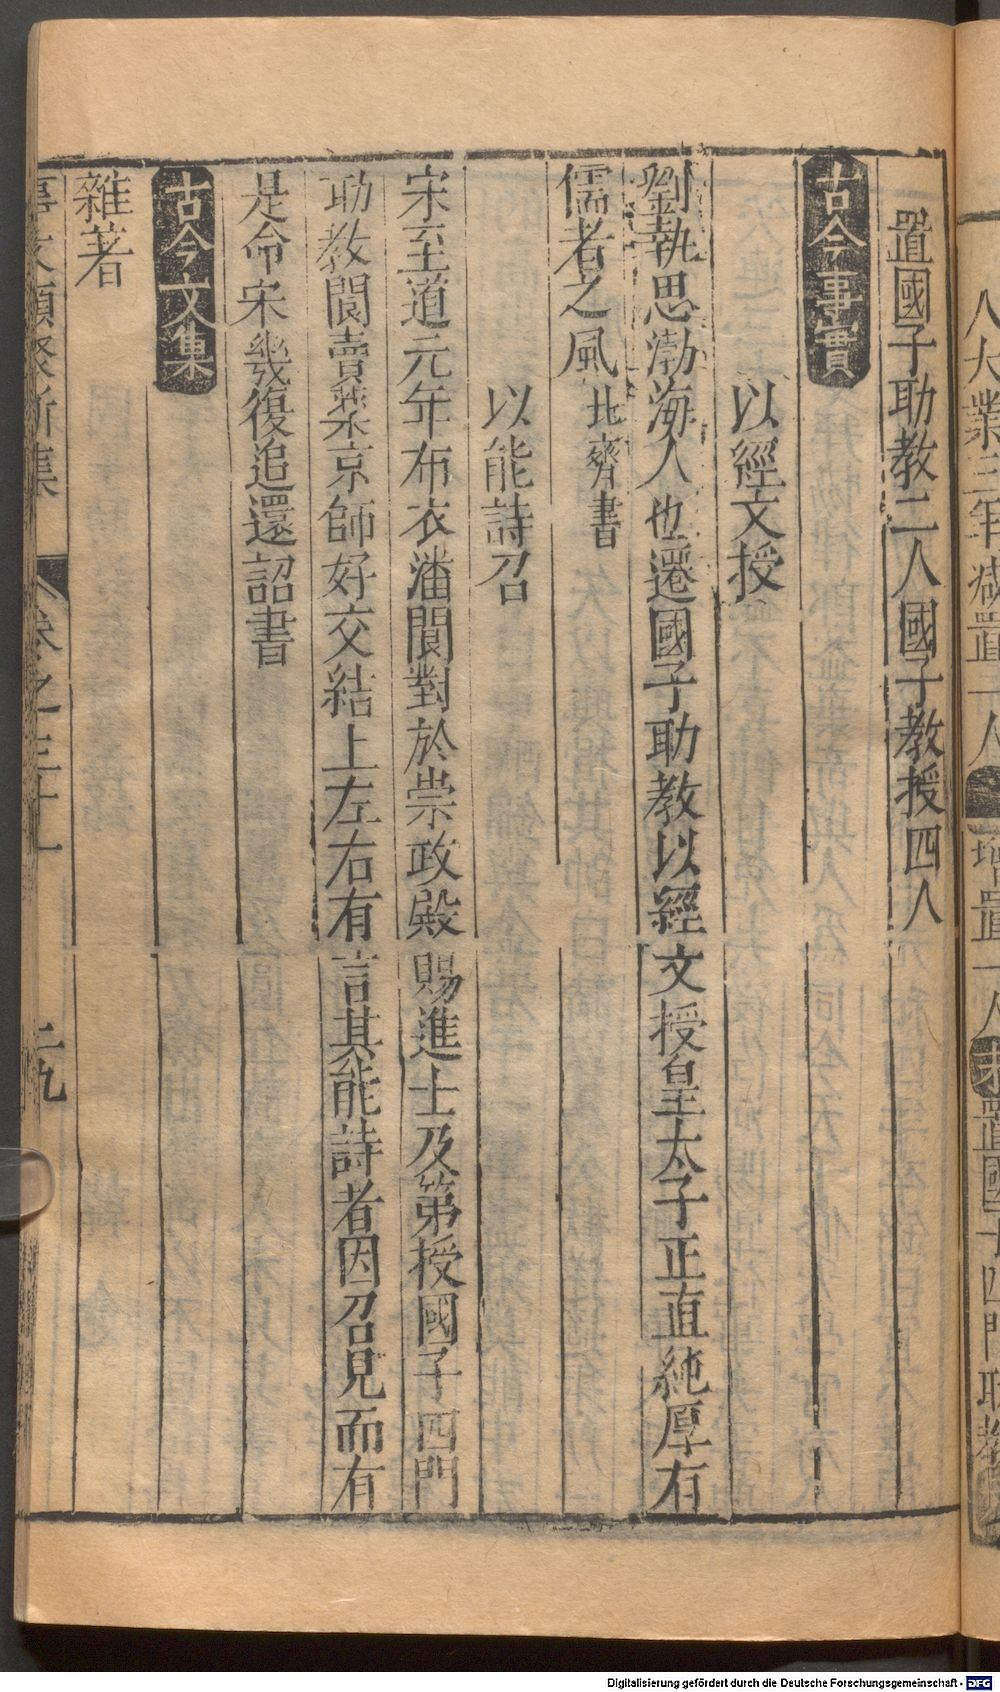 置國子助教二人國子教授四人
古今事實
以經文授
劉執思渤海人也遷國子助教以經文授皇太子正直純厚有
儒者之風北齊書
以能詩召
宋至道元年布衣潘閬對於崇政殿賜進士及第授國子四門
助教閬賣藥京師好交結上左右有言其能詩者因召見而有
是命宋幾復追還詔書
古今文集
雜著
事文類聚新集
卷之三十一
二九
Digitalisierung gefördert durch die Deutsche Forschungsgemeinschaft - DFG